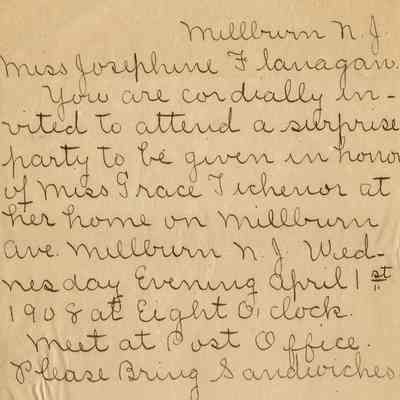 Millburn N. J.
Miss Josephine Flanagan.
You are cordially in-
vited to attend a surprise
party to be given in honor
of Miss Grace Tichenor at
her home on Millburn
Ave. Millburn N. J. Wed-
nesday Evening April 1st
1908 at Eight O'clock.
Meet at Post Office.
Please Bring Sandwiches